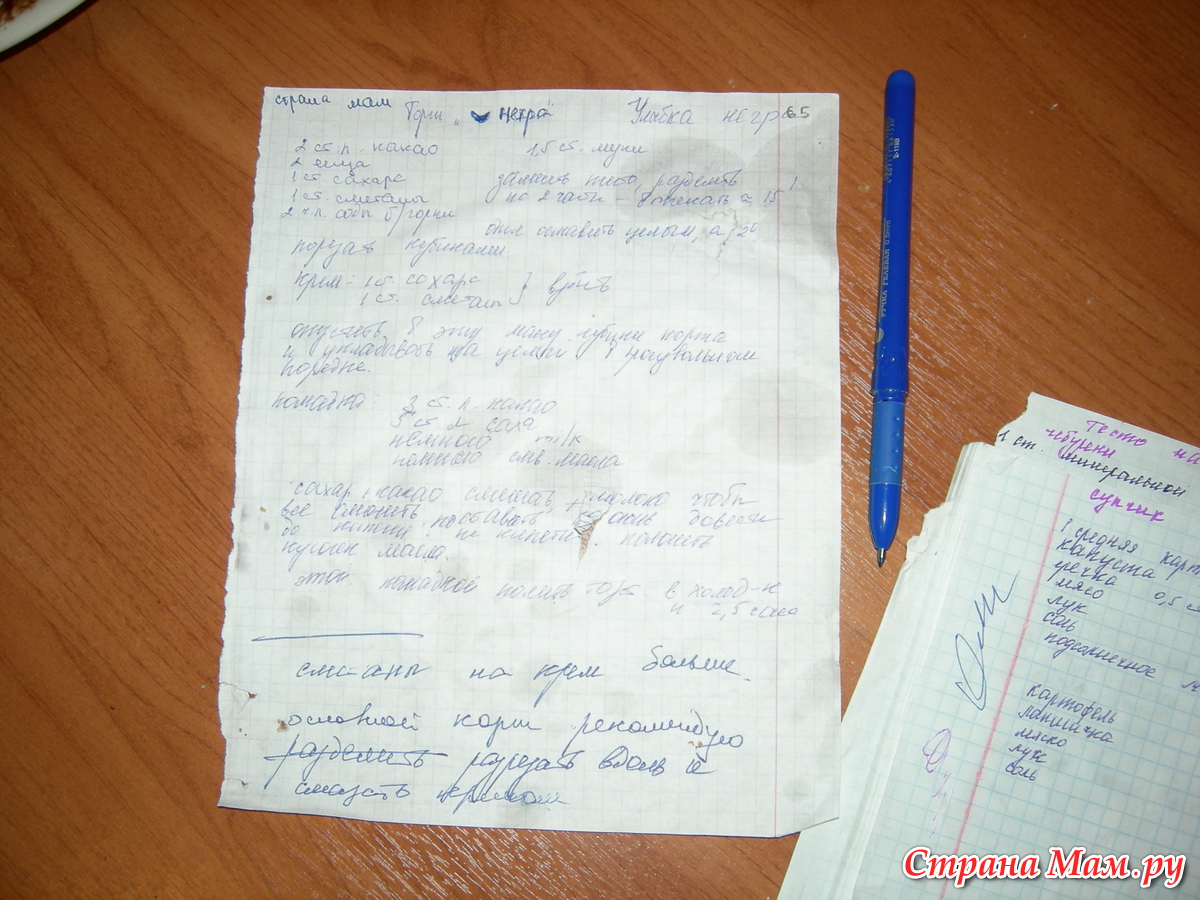 страна мам
Торт „ негра"
Улыбка негра 65
2 ст. л. какао
1,5 ст. муки
2 яйца
1 ст. сахара
замесить тесто, разделить
1 ст. сметаны
на 2 части – выпекать ≈ 15'
2 ч.л. соды
один оставить целым, а 2й
порезать кубиками.
крем: 1 ст. сахара
1 ст. сметаны } взбить
опустить в эту массу кубики коржа
и укладывать на целый в произвольном
порядке.
помадка: 3 ст. л. какао
3 ст. л. сахара
немного milk
немного слив. масла
сахар + какао смешать, + молоко чтобы
все смочить, поставить, на огонь довести
до кипения, не кипятить. положить
кусочек масла.
этой помадкой полить торт. в холод-к
2,5 часа
сметаны на крем больше.
основной корж рекомендую
разделить разрезать вдоль и
смазать кремом
РУЧКА ГЕЛЕВАЯ 0.5mm
Тесто на
чебуреки
1 ст. минеральной
супчик
1 средняя карт
капуста
гречка 0,5 ст
мясо
лук
соль
подсолнечное м
картофель
лапшичка
мяско
лук
соль
Страна Мам.ру